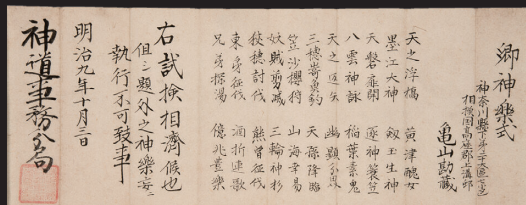 御神楽式
神奈川縣下第二十大區一小區
相摸国高座郡上溝邨
亀山勘蔵
天之浮橋 黄津醜女
墨江大神 剱玉生神
天磐扉開 逐神簑笠
八雲神詠 稲葉素兎
天之返矢 幽顕分界
三種神寶 天孫降臨
笠沙櫻狩 山海幸易
奸賊剪滅 三輪神杉
東夷征伐 酒折連歌
熊曽征伐
兄弟探湯 億兆豊樂
右試撿相濟候也
但シ題外之神樂妄ニ
執行不可致事
明治九年十月三日
神道事務分局